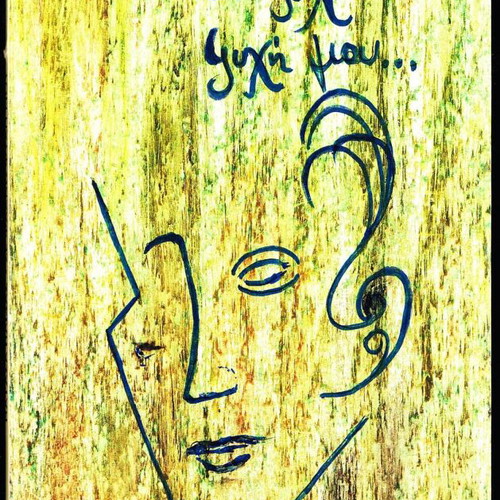 ψυχή μου...